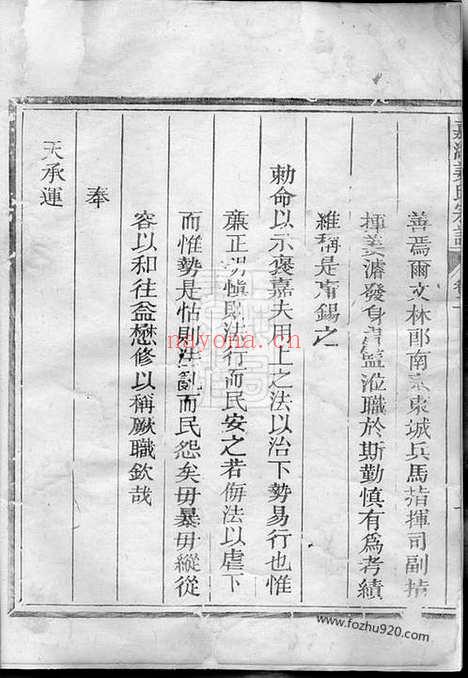 善焉爾文林郎南京東城兵馬指揮司副指
揮姜濬發身胄監涖職於斯勤慎有為考績
維稱是用錫之
勅命以示褒嘉夫用上之法以治下勢易行也惟
廉正明慎則法行而民安之若侮法以虐下
而惟勢是怙則法亂而民怨矣毋暴毋縱從
容以和往益懋修以稱厥職欽哉
奉
天承運
nayona.cn
www.fozhu920.com